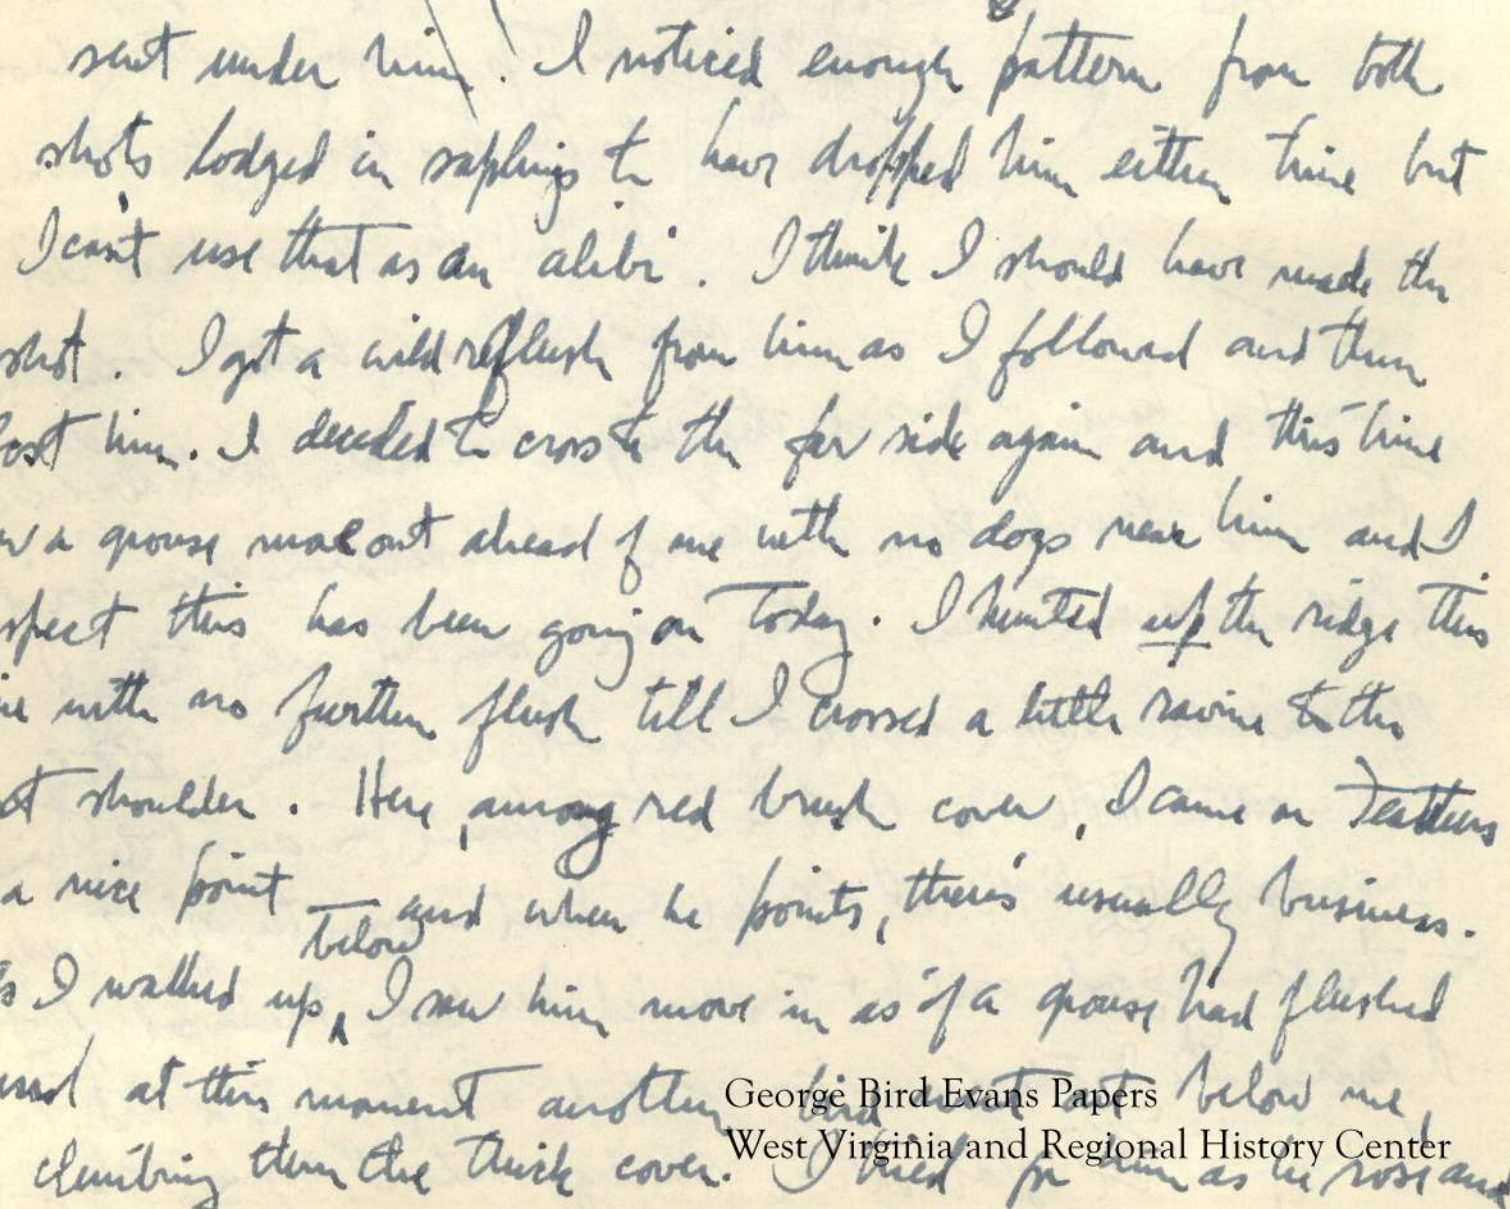 sent under him. I noticed enough pattern from both
shots lodged in saplings to have dropped him either time but
I can't use that as an alibi. I think I should have made the
shot. I got a wild reflush from him as I followed and then
lost him. I decided to cross to the far side again and this time
a grouse move out ahead of me with no dogs near him and I
this has been going on today. I hunted up the ridge this
with no further flush till I crossed a little ravine to the
shoulder. Here, among red brush cover, I came on Feathers
a nice point — and when he points, there's usually business.
below
I walked up, I saw him move in as if a grouse had flushed
and at this moment another bird went out below me,
climbing thru the thick cover. I tried for him as he rose and
George Bird Evans Papers
West Virginia and Regional History Center